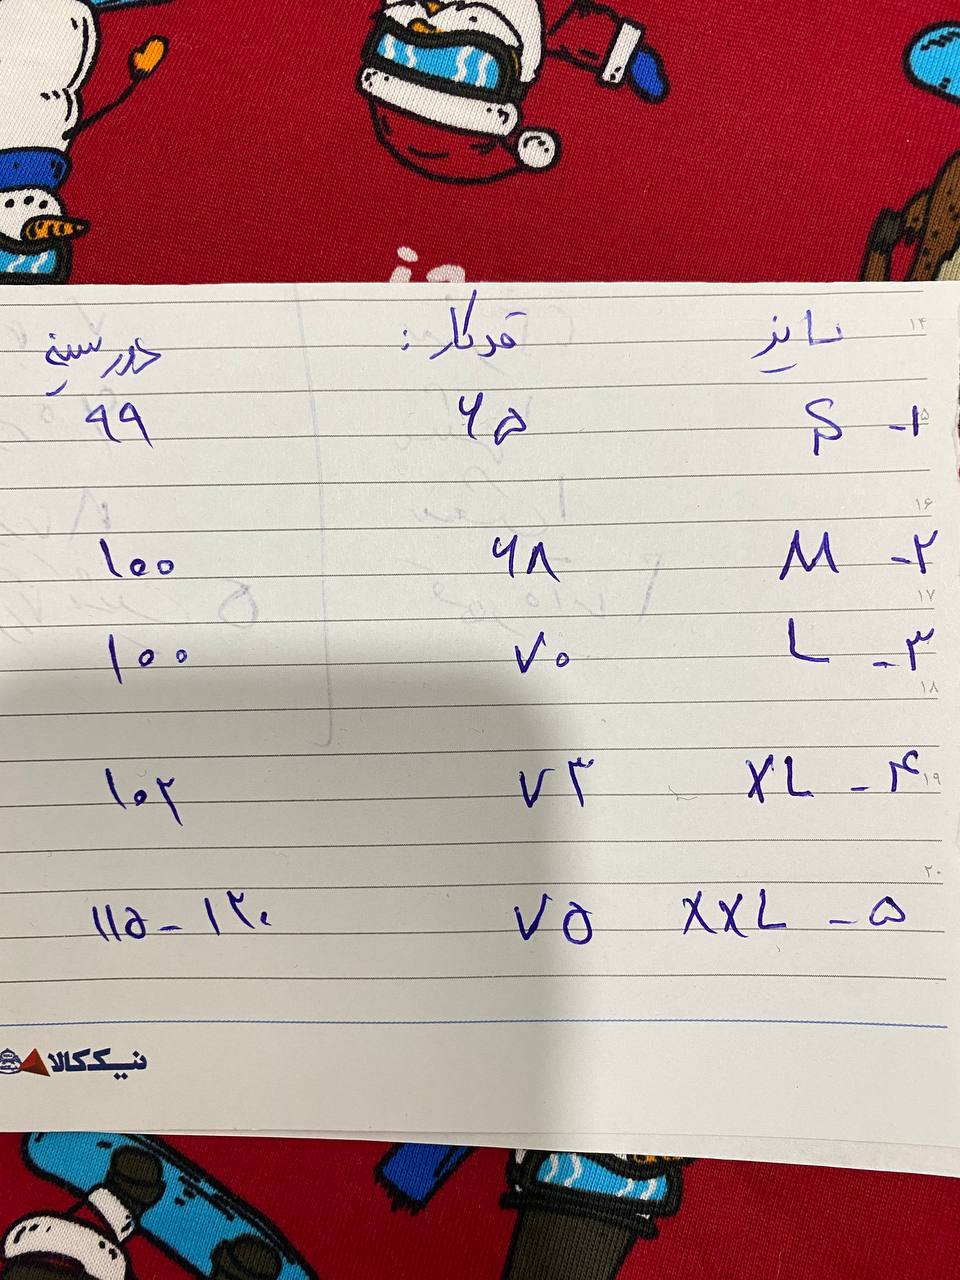 سایز قد کار: دور سینه
۱- S ۶۵ ۹۹
۲- M ۶۸ ۱۰۰
۳- L ۷۰ ۱۰۰
۴- XL ۷۳ ۱۰۲
۵- XXL ۷۵ ۱۱۵-۱۲۰
۱۴
۱۵
۱۶
۱۷
۱۸
۱۹
۲۰
نیک‌کالا